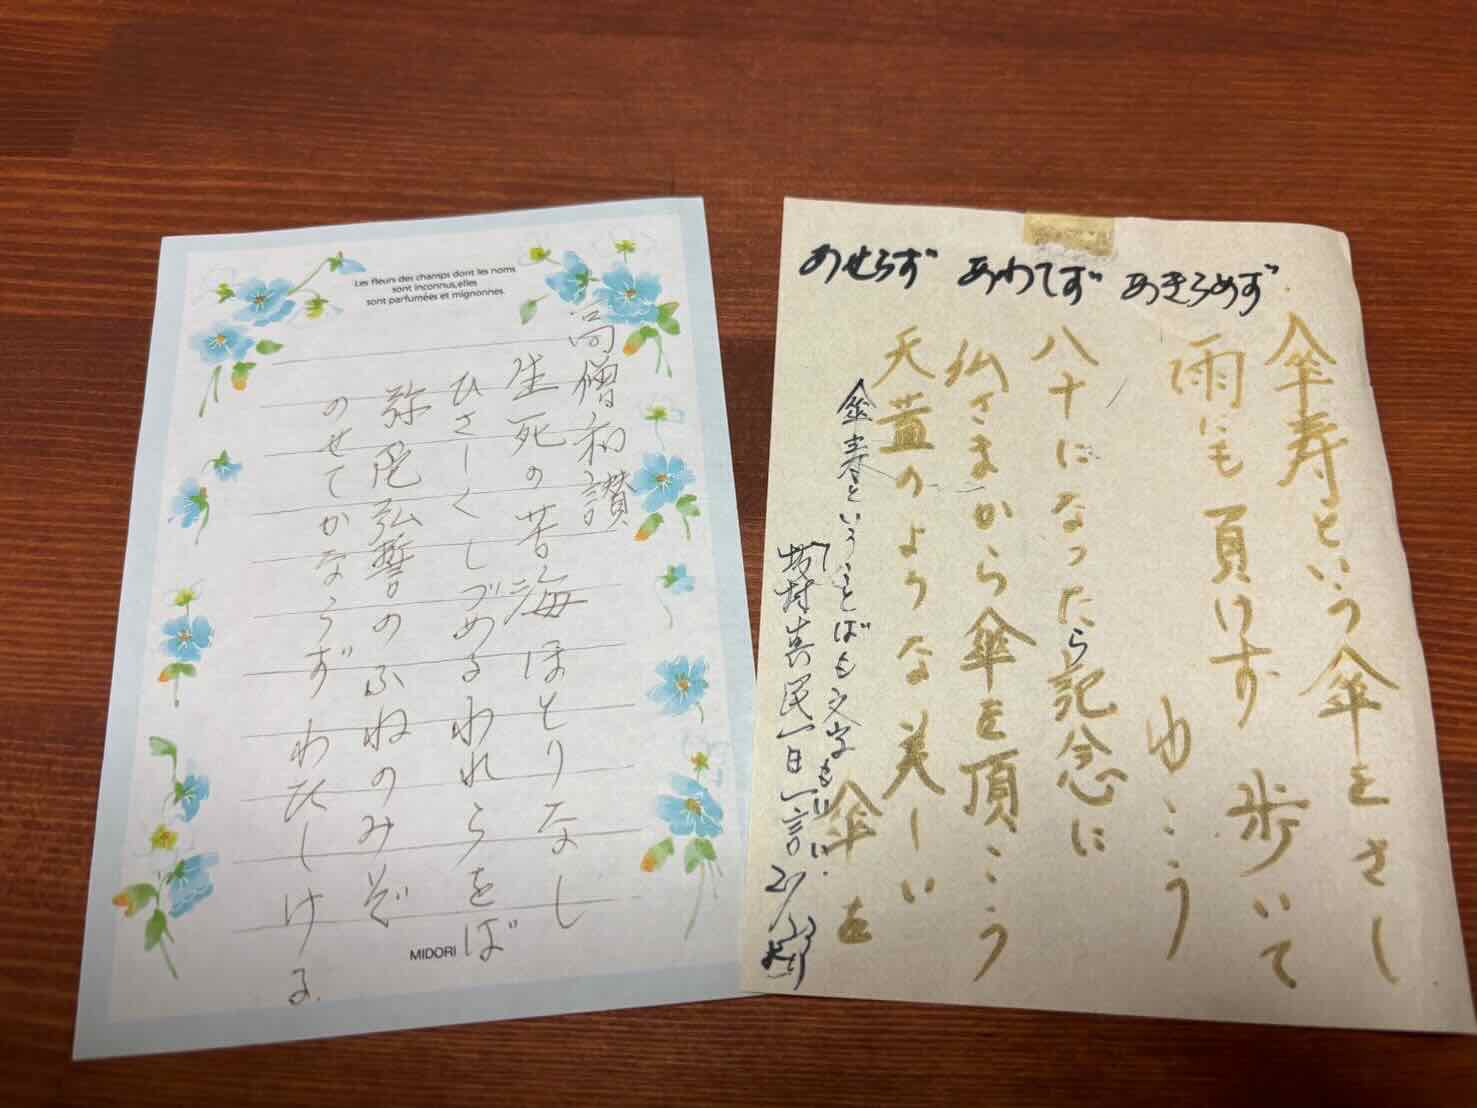 Les fleurs des champs dont les noms
sont inconnus,elles
sont parfumées et mignonnes.
高僧和讃
生死の苦海ほとりなし
ひさしくしづめるわれらをば
弥陀弘誓のふねのみぞ
のせてかならずわたしける
MIDORI
あせらず あわてず あきらめず
傘寿という傘をさし
雨にも負けず 歩いて
ゆこう
八十になったら記念に
仏さまから傘を頂こう
天蓋のような美しい
傘を
傘寿ということばも文字もいい
坂村真民一日一言